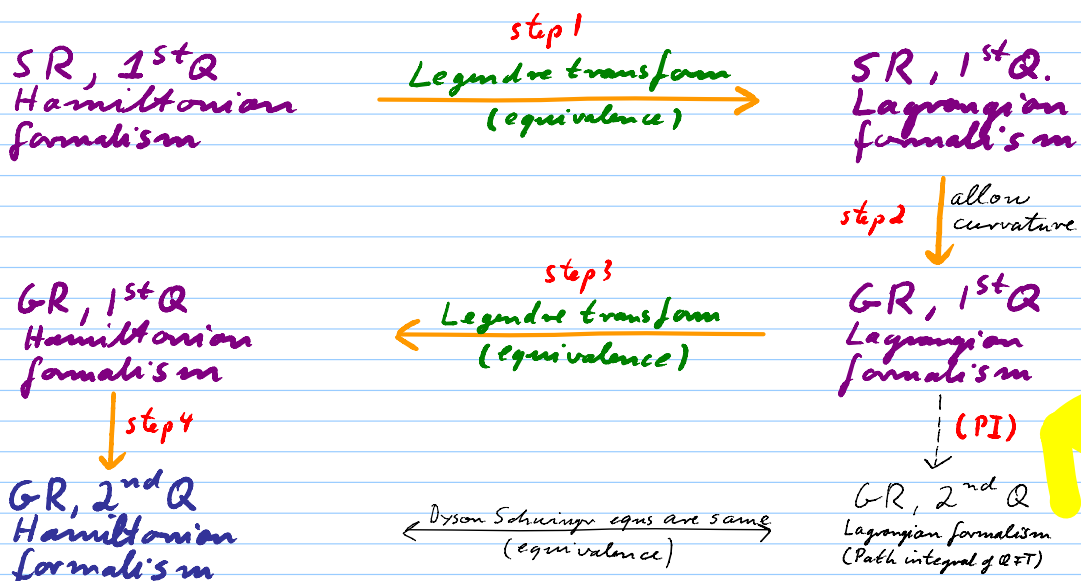 step 1
SR, 1st Q
Hamiltonian
formalism
Legendre transform
(equivalence)
SR, 1st Q.
Lagrangian
formalism
step 2
allow
curvature
step 3
GR, 1st Q
Hamiltonian
formalism
Legendre transform
(equivalence)
GR, 1st Q
Lagrangian
formalism
step 4
(PI)
GR, 2nd Q
Hamiltonian
formalism
Dyson Schwinger eqns are same
(equivalence)
GR, 2nd Q
Lagrangian formalism
(Path integral of QFT)